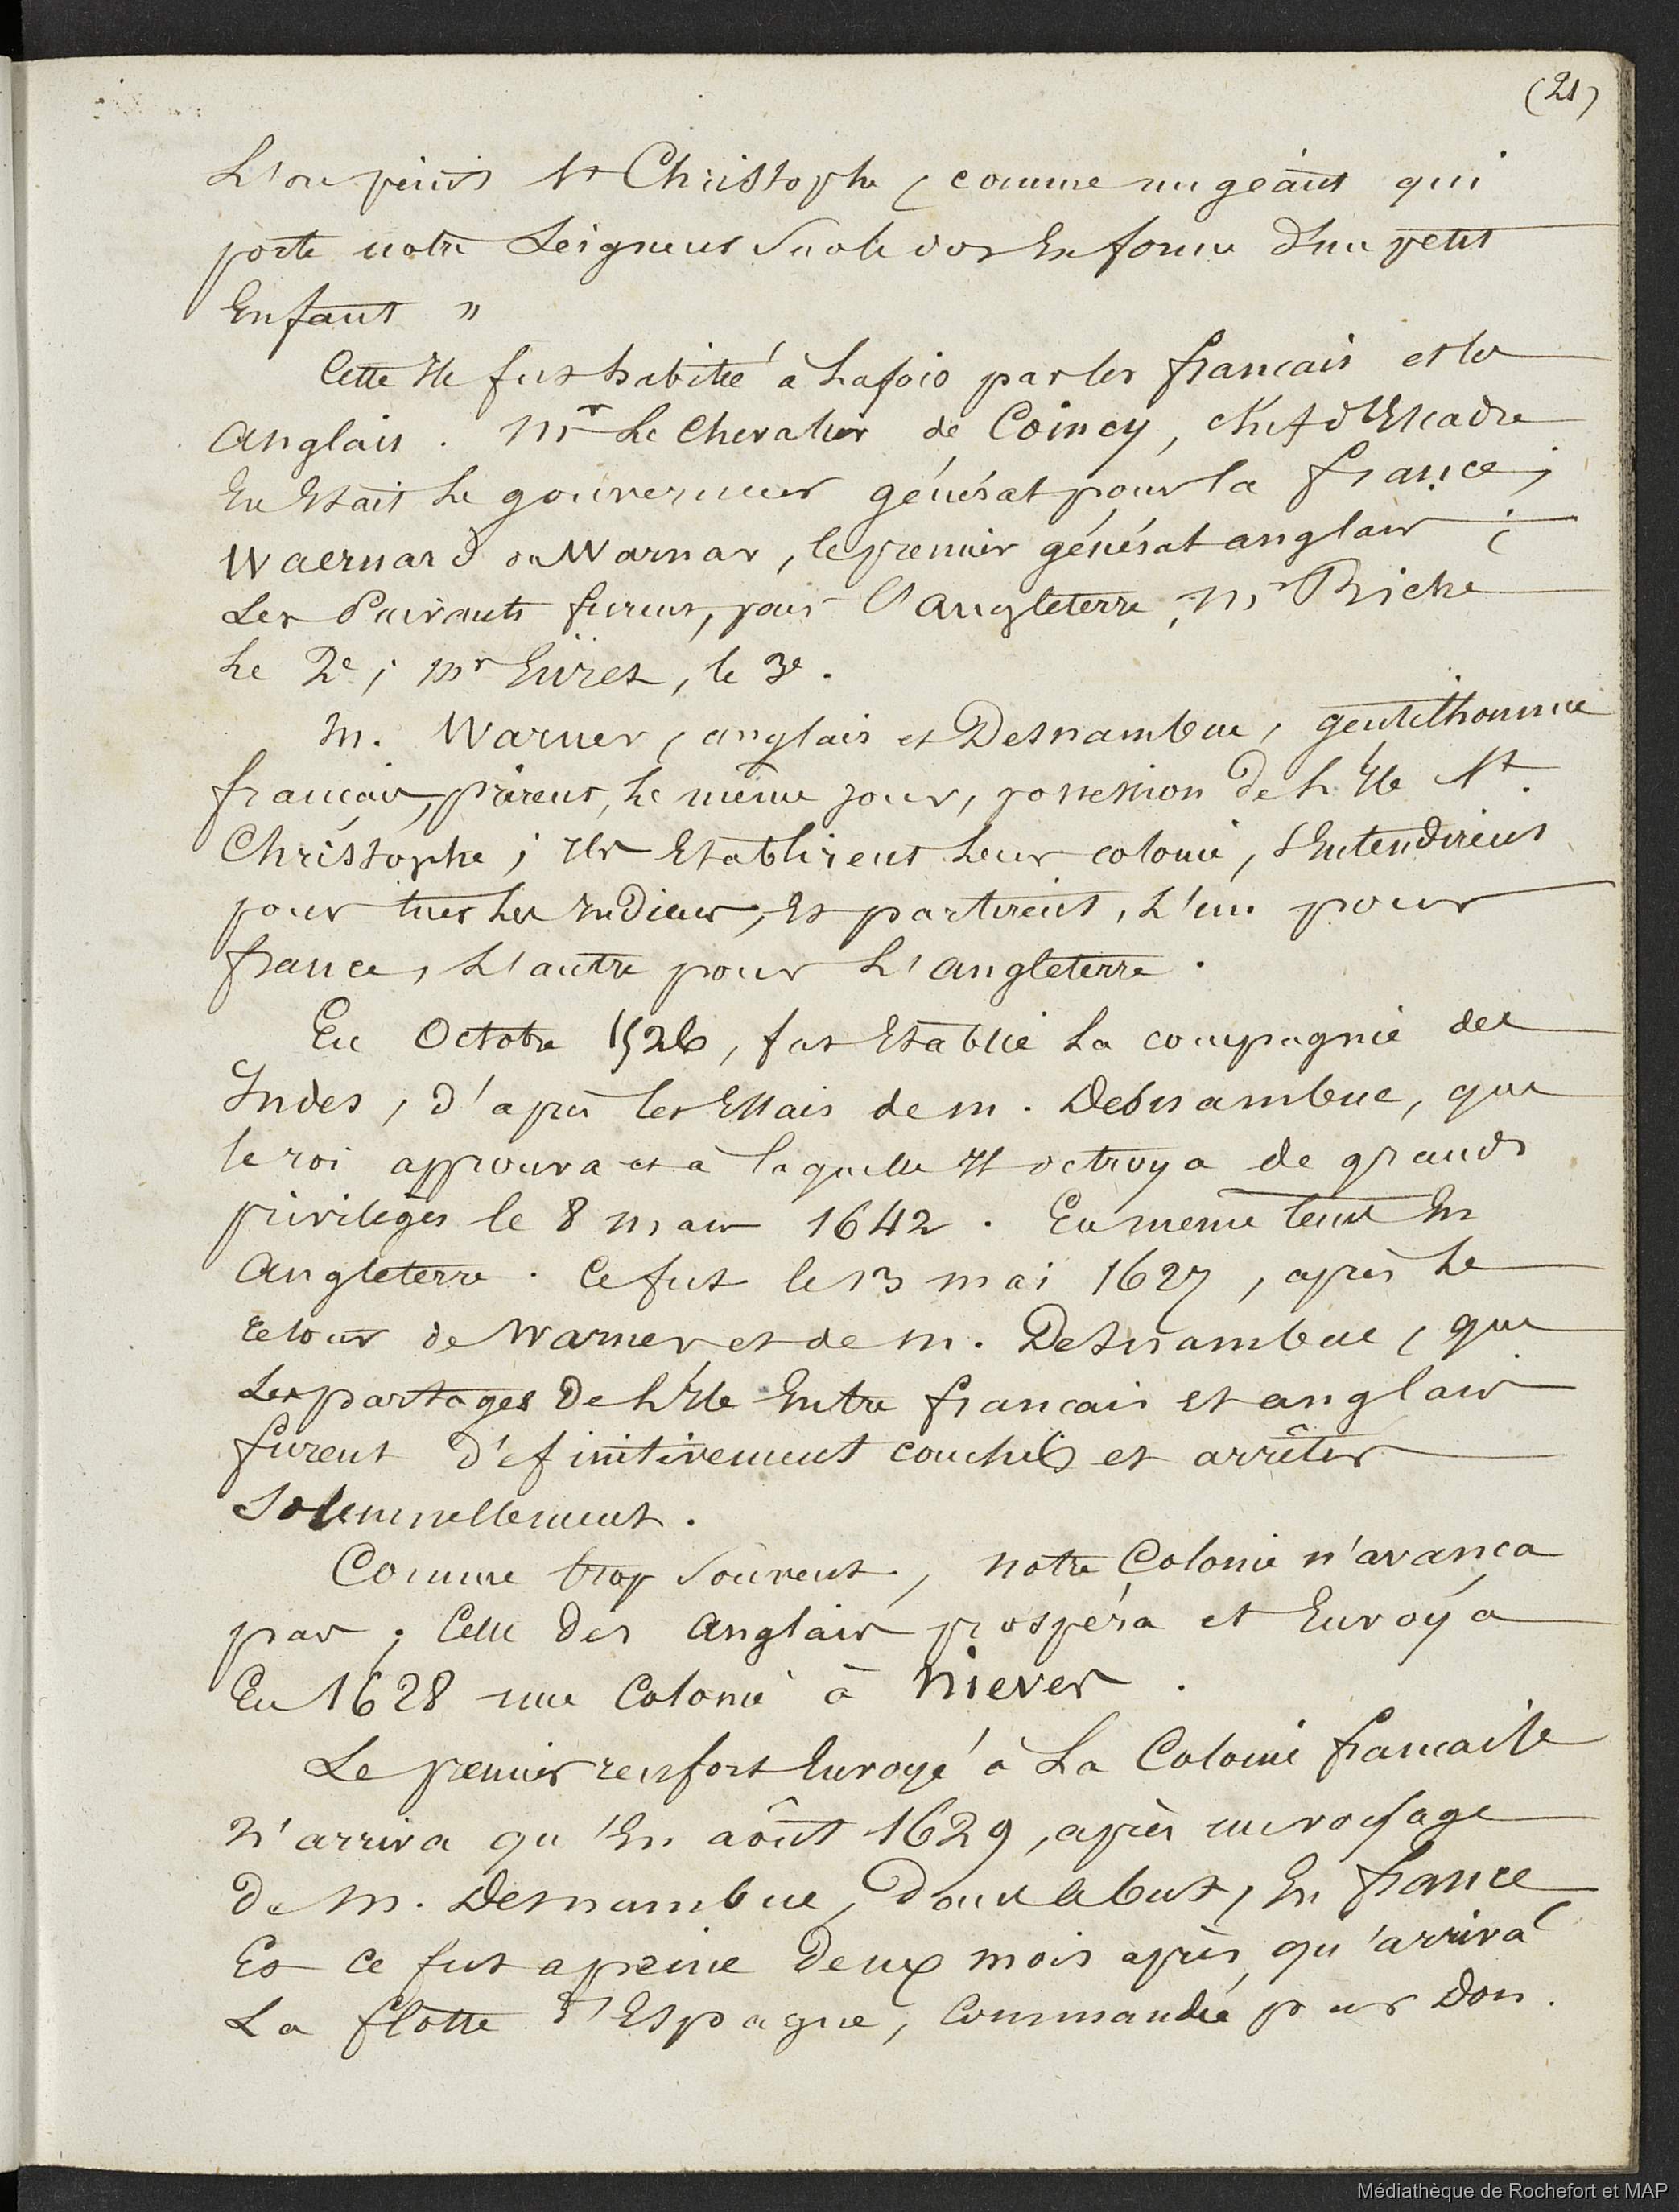 (21)
L'on peint St Christophe, comme un géant qui
porte notre Seigneur sur le dos En forme d'un petit
Enfant "
Cette Ile fut habitée à la fois par les français et les
Anglais. Mr Le Chevalier de Coincy, chef d'Escadre
En Etait Le gouverneur général pour la France;
Waernard ou Warnar, le premier général anglais;
Les Suivants furent, pour l'Angleterre, Mr Riche
Le 2e; Mr Eüret, le 3e.
M. Warner, anglais et Desnambuc, gentilhomme
français, prirent, Le même jour, possession de L'Ile St.
Christophe; Ils Etablirent Leur colonie, s'Entendirent
pour tuer Les Indiens, Et partirent, L'un pour
france, L'autre pour L'angleterre.
En Octobre 1526, fut Etablie La compagnie des
Indes, d'après les Essais de m. Desnambuc, que
le roi approuva et à laquelle Il octroya de grands
privilèges le 8 mars 1642. En meme tems En
Angleterre. Ce fut le 13 mai 1627, après Le
retour de Warner et de m. Desnambuc, que
Les partages de L'Ile Entre francais Et anglais
furent définitivement couchés et arrêtés
Solennellement.
Comme trop Souvent, notre Colonie n'avança
pas; Celle des Anglais prospéra et Envoya
En 1628 une Colonie à Nieves.
Le premier renfort Envoyé à La Colonie francaise
N'arriva qu'En août 1629, après un voyage
de M. Desnambuc, dans le but, En France
Et ce fut a peine deux mois après, qu'arriva
La flotte d'Espagne, Commandée par Don.
Médiathèque de Rochefort et MAP